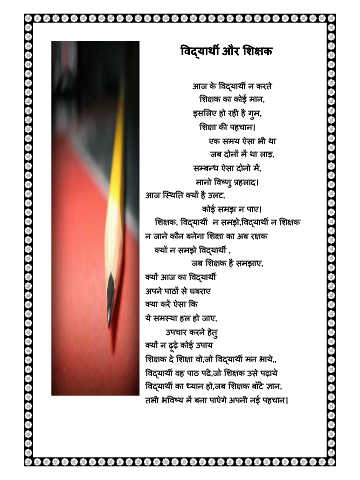 विद्यार्थी और शिक्षक
आज के विद्यार्थी न करते
शिक्षक का कोई मान,
इसलिए हो रही है गुम,
शिक्षा की पहचान।
एक समय ऐसा भी था
जब दोनों में था लाड,
सम्बन्ध ऐसा दोनो में,
मानो विष्णु प्रहलाद।
आज स्थिति क्यों है उलट,
कोई समझ न पाए।
शिक्षक, विद्यार्थी न समझे,विद्यार्थी न शिक्षक
न जाने कौन बनेगा शिक्षा का अब रक्षक
क्यों न समझे विद्यार्थी ,
जब शिक्षक है समझाए,
क्यों आज का विद्यार्थी
अपने पाठों से घबराए
क्या करें ऐसा कि
ये समस्या हल हो जाए,
उपचार करने हेतु
क्यों न ढूढ़े कोई उपाय
शिक्षक दे शिक्षा वो,जो विद्यार्थी मन भाये,,
विद्यार्थी वह पाठ पढे,जो शिक्षक उसे पढ़ाये
विद्यार्थी का ध्यान हो,जब शिक्षक बाँटे ज्ञान,
तभी भविष्य में बना पाऐंगे अपनी नई पहचान।